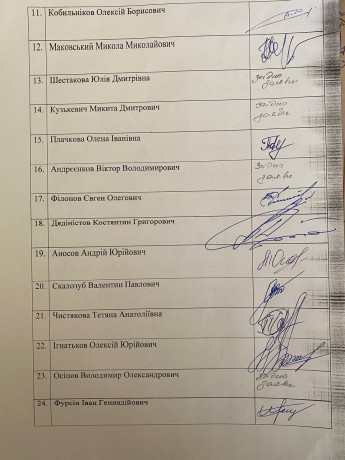 11. Кобильніков Олексій Борисович
12. Маковський Микола Миколайович
13. Шестакова Юлія Дмитрівна
згідно
заяви
14. Кузькевич Микита Дмитрович
згідно
заяви
15. Плачкова Олена Іванівна
16. Андрєєнков Віктор Володимирович
згідно
заяви
17. Філонов Євген Олегович
18. Дядіністов Костянтин Григорович
19. Аносов Андрій Юрійович
20. Скалозуб Валентин Павлович
21. Чистякова Тетяна Анатоліївна
22. Ігнатьков Олексій Юрійович
23. Осіпов Володимир Олександрович
згідно
заяви
24. Фурсін Іван Геннадійович